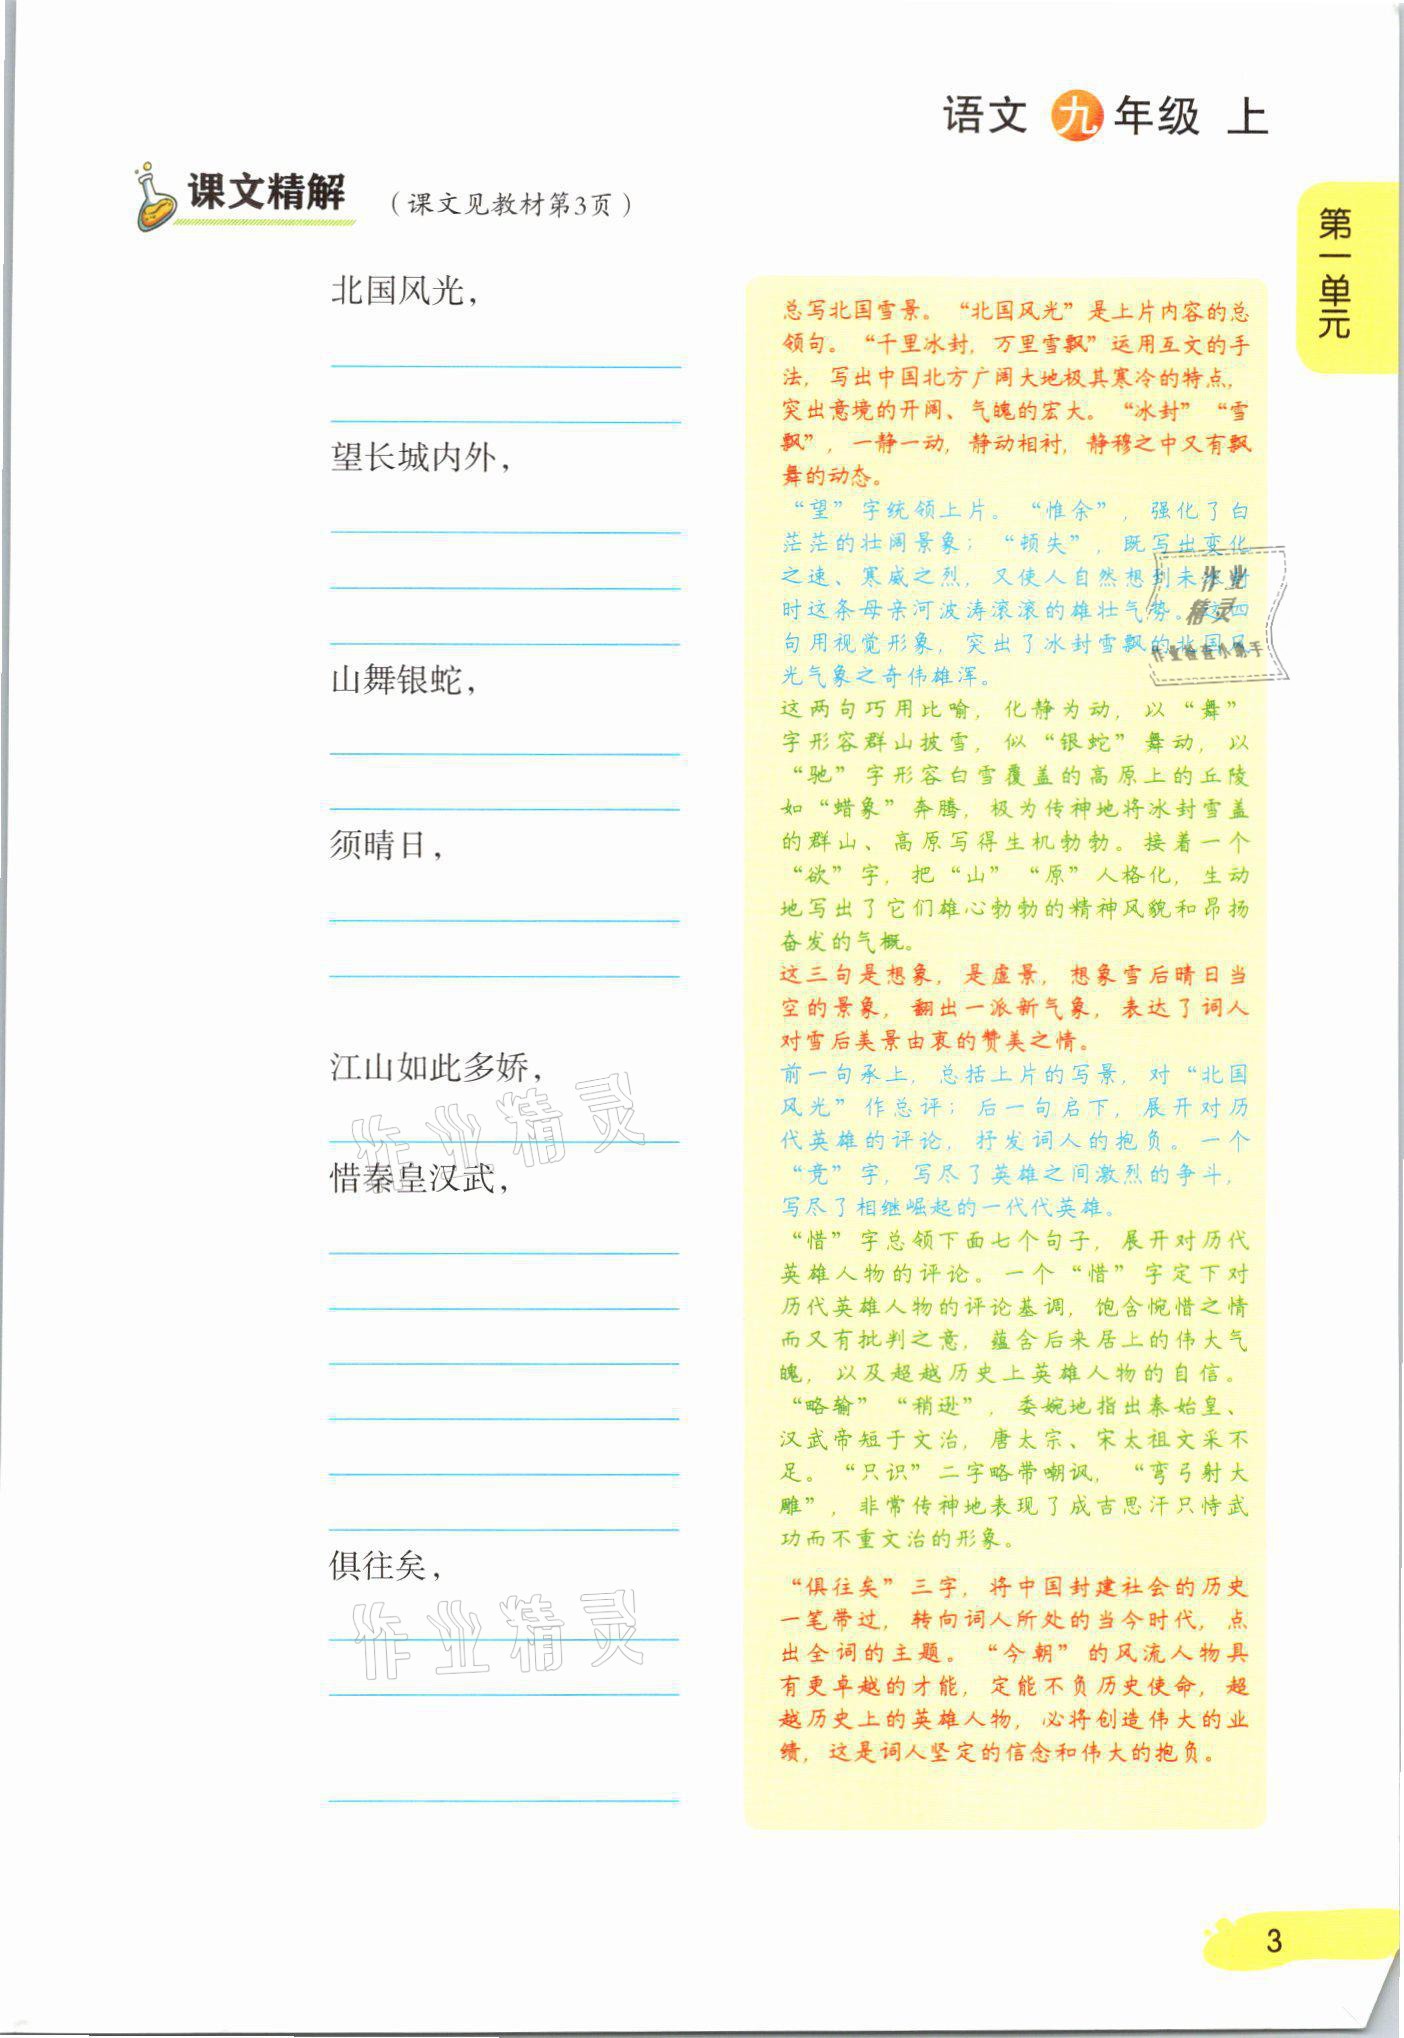 语文 九 年级 上
课文精解 （课文见教材第3页）
第一单元
北国风光，
望长城内外，
山舞银蛇，
须晴日，
江山如此多娇，
惜秦皇汉武，
俱往矣，
总写北国雪景。“北国风光”是上片内容的总
领句。“千里冰封，万里雪飘”运用互文的手
法，写出中国北方广阔大地极其寒冷的特点，
突出意境的开阔、气魄的宏大。“冰封”“雪
飘”，一静一动，静动相衬，静穆之中又有飘
舞的动态。
“望”字统领上片。“惟余”，强化了白
茫茫的壮阔景象；“顿失”，既写出变化
之速、寒威之烈，又使人自然想到未冰封
时这条母亲河波涛滚滚的雄壮气势。这四
句用视觉形象，突出了冰封雪飘的北国风
光气象之奇伟雄浑。
这两句巧用比喻，化静为动，以“舞”
字形容群山披雪，似“银蛇”舞动，以
“驰”字形容白雪覆盖的高原上的丘陵
如“蜡象”奔腾，极为传神地将冰封雪盖
的群山、高原写得生机勃勃。接着一个
“欲”字，把“山”“原”人格化，生动
地写出了它们雄心勃勃的精神风貌和昂扬
奋发的气概。
这三句是想象，是虚景，想象雪后晴日当
空的景象，翻出一派新气象，表达了词人
对雪后美景由衷的赞美之情。
前一句承上，总括上片的写景，对“北国
风光”作总评；后一句启下，展开对历
代英雄的评论，抒发词人的抱负。一个
“竞”字，写尽了英雄之间激烈的争斗，
写尽了相继崛起的一代代英雄。
“惜”字总领下面七个句子，展开对历代
英雄人物的评论。一个“惜”字定下对
历代英雄人物的评论基调，饱含惋惜之情
而又有批判之意，蕴含后来居上的伟大气
魄，以及超越历史上英雄人物的自信。
“略输”“稍逊”，委婉地指出秦始皇、
汉武帝短于文治，唐太宗、宋太祖文采不
足。“只识”二字略带嘲讽，“弯弓射大
雕”，非常传神地表现了成吉思汗只恃武
功而不重文治的形象。
“俱往矣”三字，将中国封建社会的历史
一笔带过，转向词人所处的当今时代，点
出全词的主题。“今朝”的风流人物具
有更卓越的才能，定能不负历史使命，超
越历史上的英雄人物，必将创造伟大的业
绩，这是词人坚定的信念和伟大的抱负。
作业
精灵
作业检查小助手
作业精灵
作业精灵
3